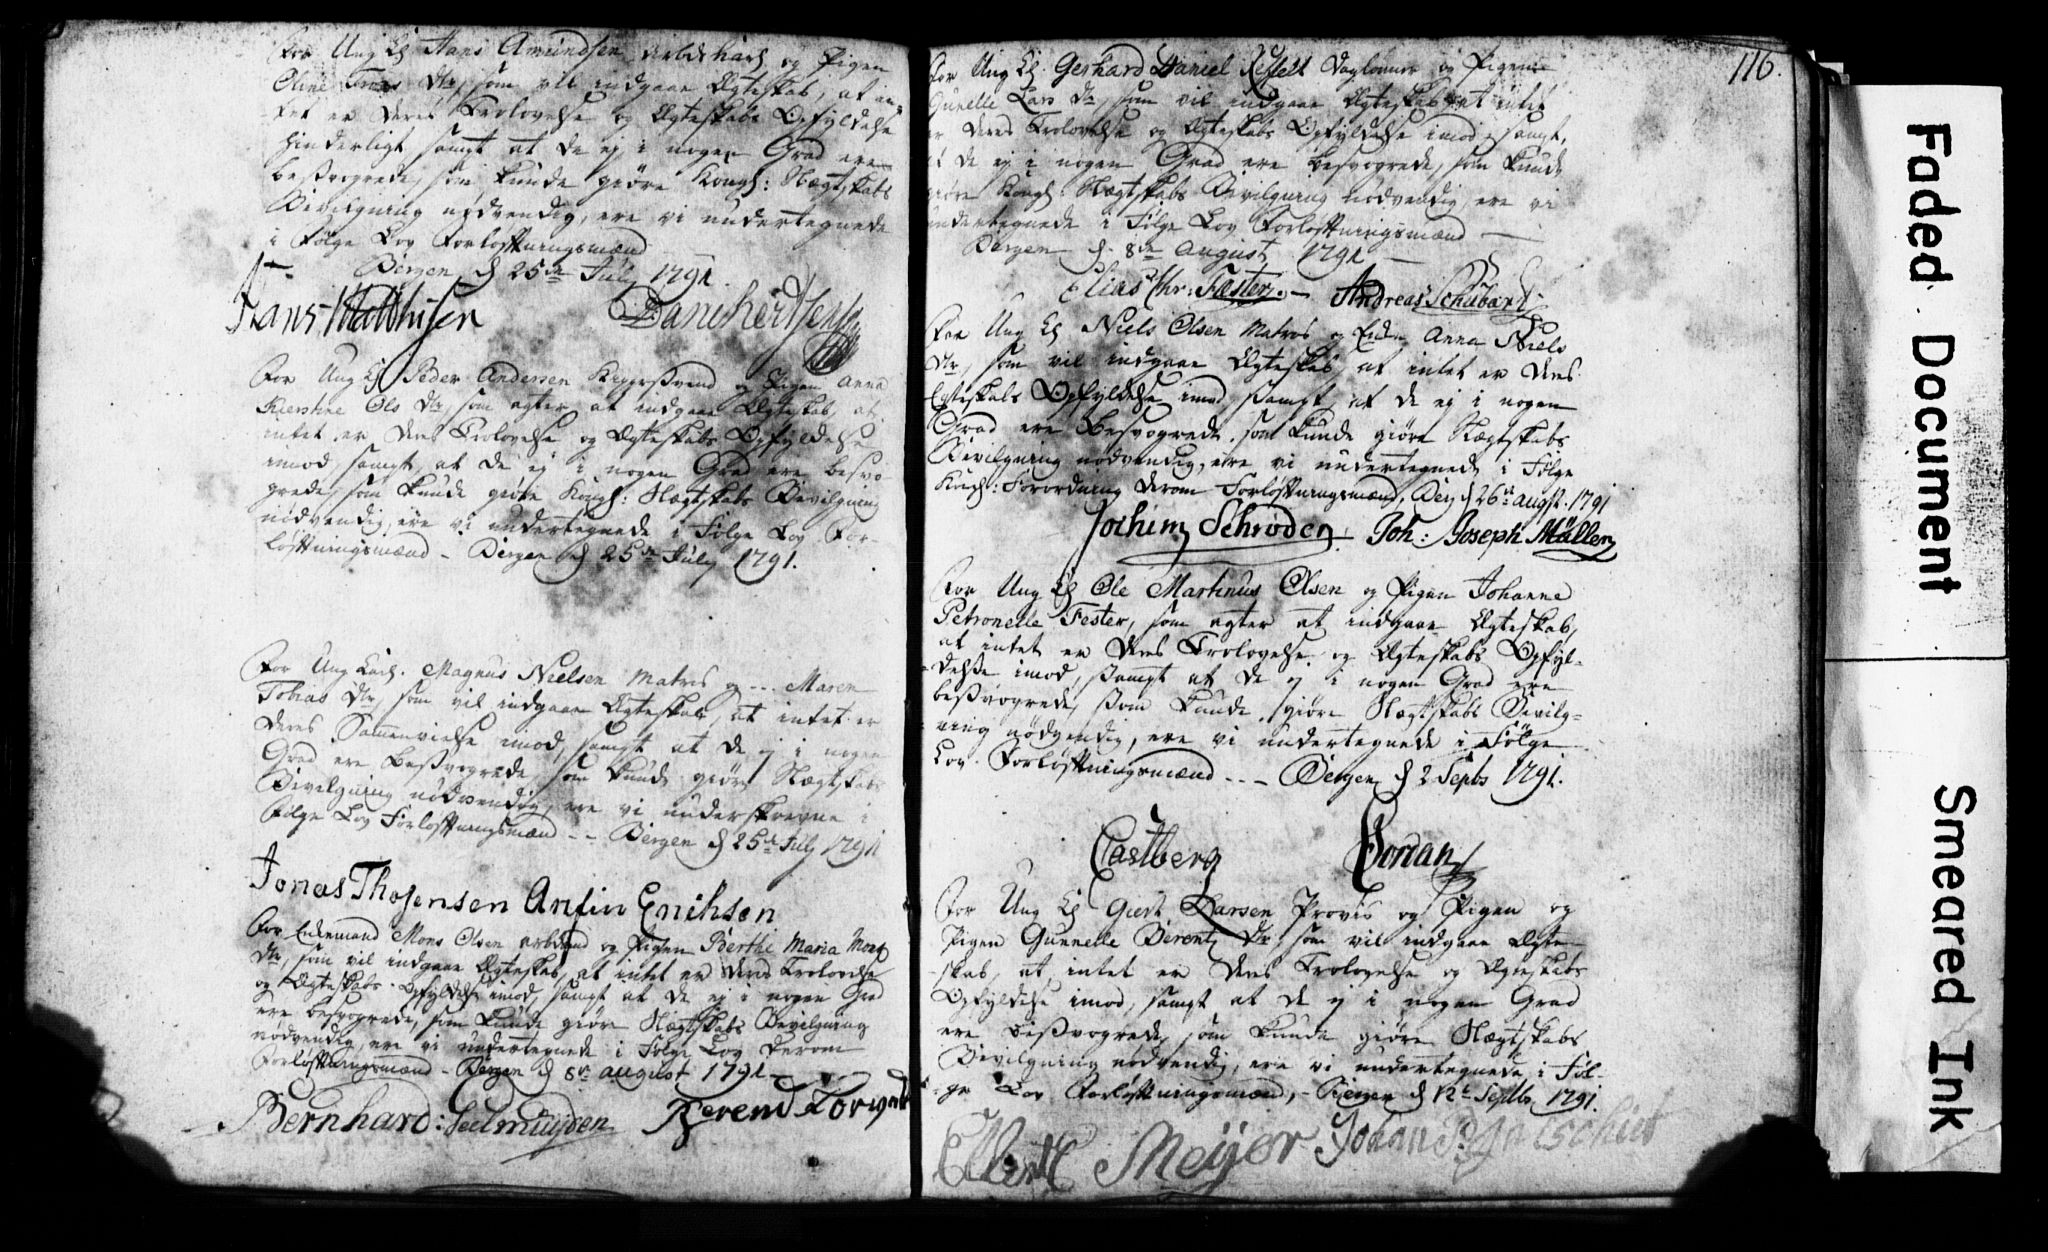 For Ung K. Hans Amundsen Arbdskarl og Pigen
Oline Troes Dtr, som vil indgaae Ægteskab, at in-
tet er deres Trolovelse og Ægteskabs Opfyldelse
hinderligt samt at de ej i nogen Grad ere
besvogrede, som kunde giøre Kongl: Slægtskabs
Bevilgning nødvendig, ere vi undertegnede
i Følge Lov Forlovtningsmænd
Bergen d 25de July 1791.
Hans Matthisen Danckertsen
For Ung K Peder Andersen Kippersvend og Pigen Anna
Kierstine Ols Dtr, som agter at indgaae Ægteskab, at
intet er deres Trolovelse og Ægteskabs Opfyldelse
imod, samt at de ej i nogen Grad ere besvo-
grede, som kunde giøre Kongl: Slægtskabs Bevilgning
nødvendig, ere vi undertegnede i Følge Lov For-
lovtningsmænd - Bergen d 25de July 1791.
For Ung Karl. Magnus Nielsen Matros og --- Maren
Tobias Dtr, som vil indgaae Ægteskab, at intet er
deres Sammenvielse imod, samt at de ej i nogen
Grad ere besvogrede, som kunde giøre Slægtskabs
Bevilgning nødvendig, ere vi underskrevne i
Følge Lov Forlovtningsmænd -- Bergen d 25de July 1791
Jonas Thosensen Anfin Erichsen
For Enkemand Mons Olsen arbdmd og Pigen Berthe Maria Mons
Dtr, som vil indgaae Ægteskab, at intet er deres Trolovelse
og Ægteskabs Opfyldelse imod, samt at de ej i nogen Grad
ere besvogrede, som kunde giøre Slægtskabs Bevilgning
nødvendig, ere vi undertegnede i Følge Lov derom
Forlovtningsmænd - Bergen d 8de august 1791 -
Bernhard: Seelmuyden Berend
116.
For Ung K. Gerhard Daniel Daglønner og Pigen
Gunelle Lars Dtr, som vil indgaae Ægteskab at intet
er deres Trolovelse og Ægteskabs Opfyldelse imod, samt,
at de ej i nogen Grad ere besvogrede, som kunde
giøre Kongl: Slægtskabs Bevilgning nødvendig, ere vi
undertegnede i Følge Lov Forlovtningsmænd
Bergen d. 8de august 1791 -
Elias Chr: Fæster. - Andreas Schubart
For Ung K Niels Olsen Matros og Enken Anna Niels
Dtr, som vil indgaae Ægteskab, at intet er deres
Egteskabs Opfyldelse imod, samt, at de ej i nogen
Grad ere besvogrede, som kunde giøre Slægtskabs
Bevilgning nødvendig, ere vi undertegnede i Følge
Kongl: Forordning derom Forlovtningsmænd, Berg d 26de augst. 1791
Jochim Schrøder. Joh: Joseph Müller
For Ung K Ole Martinus Olsen og Pigen Johanne
Petronelle Fester, som agter at indgaae Ægteskab,
at intet er deres Trolovelse og Ægteskabs Opfyl-
delse imod, samt at de ej i nogen Grad ere
besvogrede, som kunde giøre Slægtskabs Bevilg-
ning nødvendig, ere vi undertegnede i Følge
Lov Forlovtningsmænd --- Bergen d 2 Septb 1791.
Castberg
For Ung K Giert Larsen Provis og Pigen og
Pigen Gunnelle Berentz Dtr, som vil indgaae Ægte-
skab, at intet er deres Trolovelse og Ægteskabs
Opfyldelse imod, samt at de ej i nogen Grad
ere besvogrede, som kunde giøre Slægtskabs
Bevilgning nødvendig, ere vi undertegnede i Føl-
ge Lov Forlovtningsmænd, - Bergen d 12te Septb 1791.
Albert Meyer Johan
Faded Document
Smeared Ink